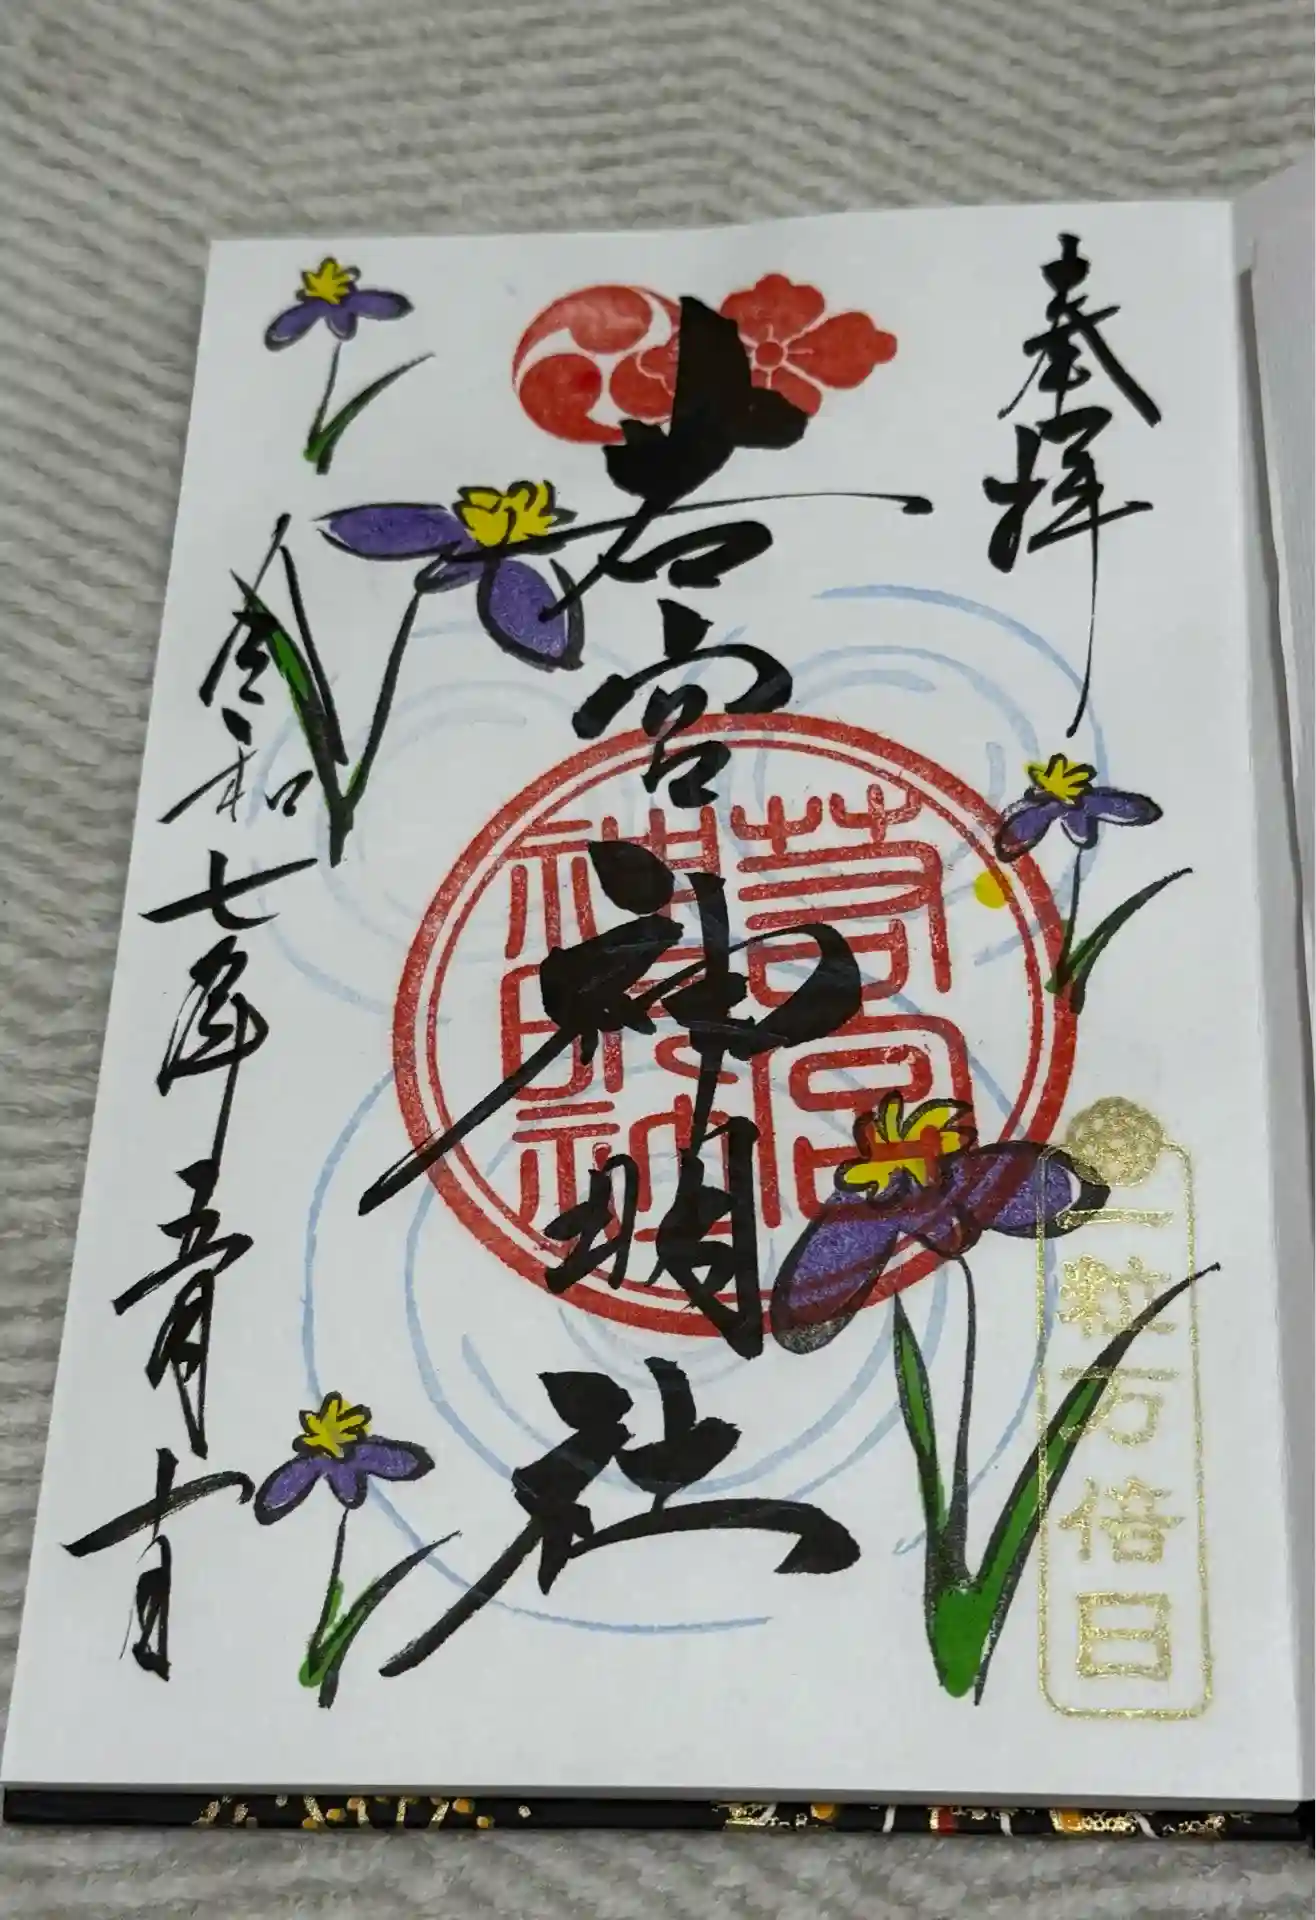 奉拝
一粒万倍日
若宮神明社
令和七年五月十日